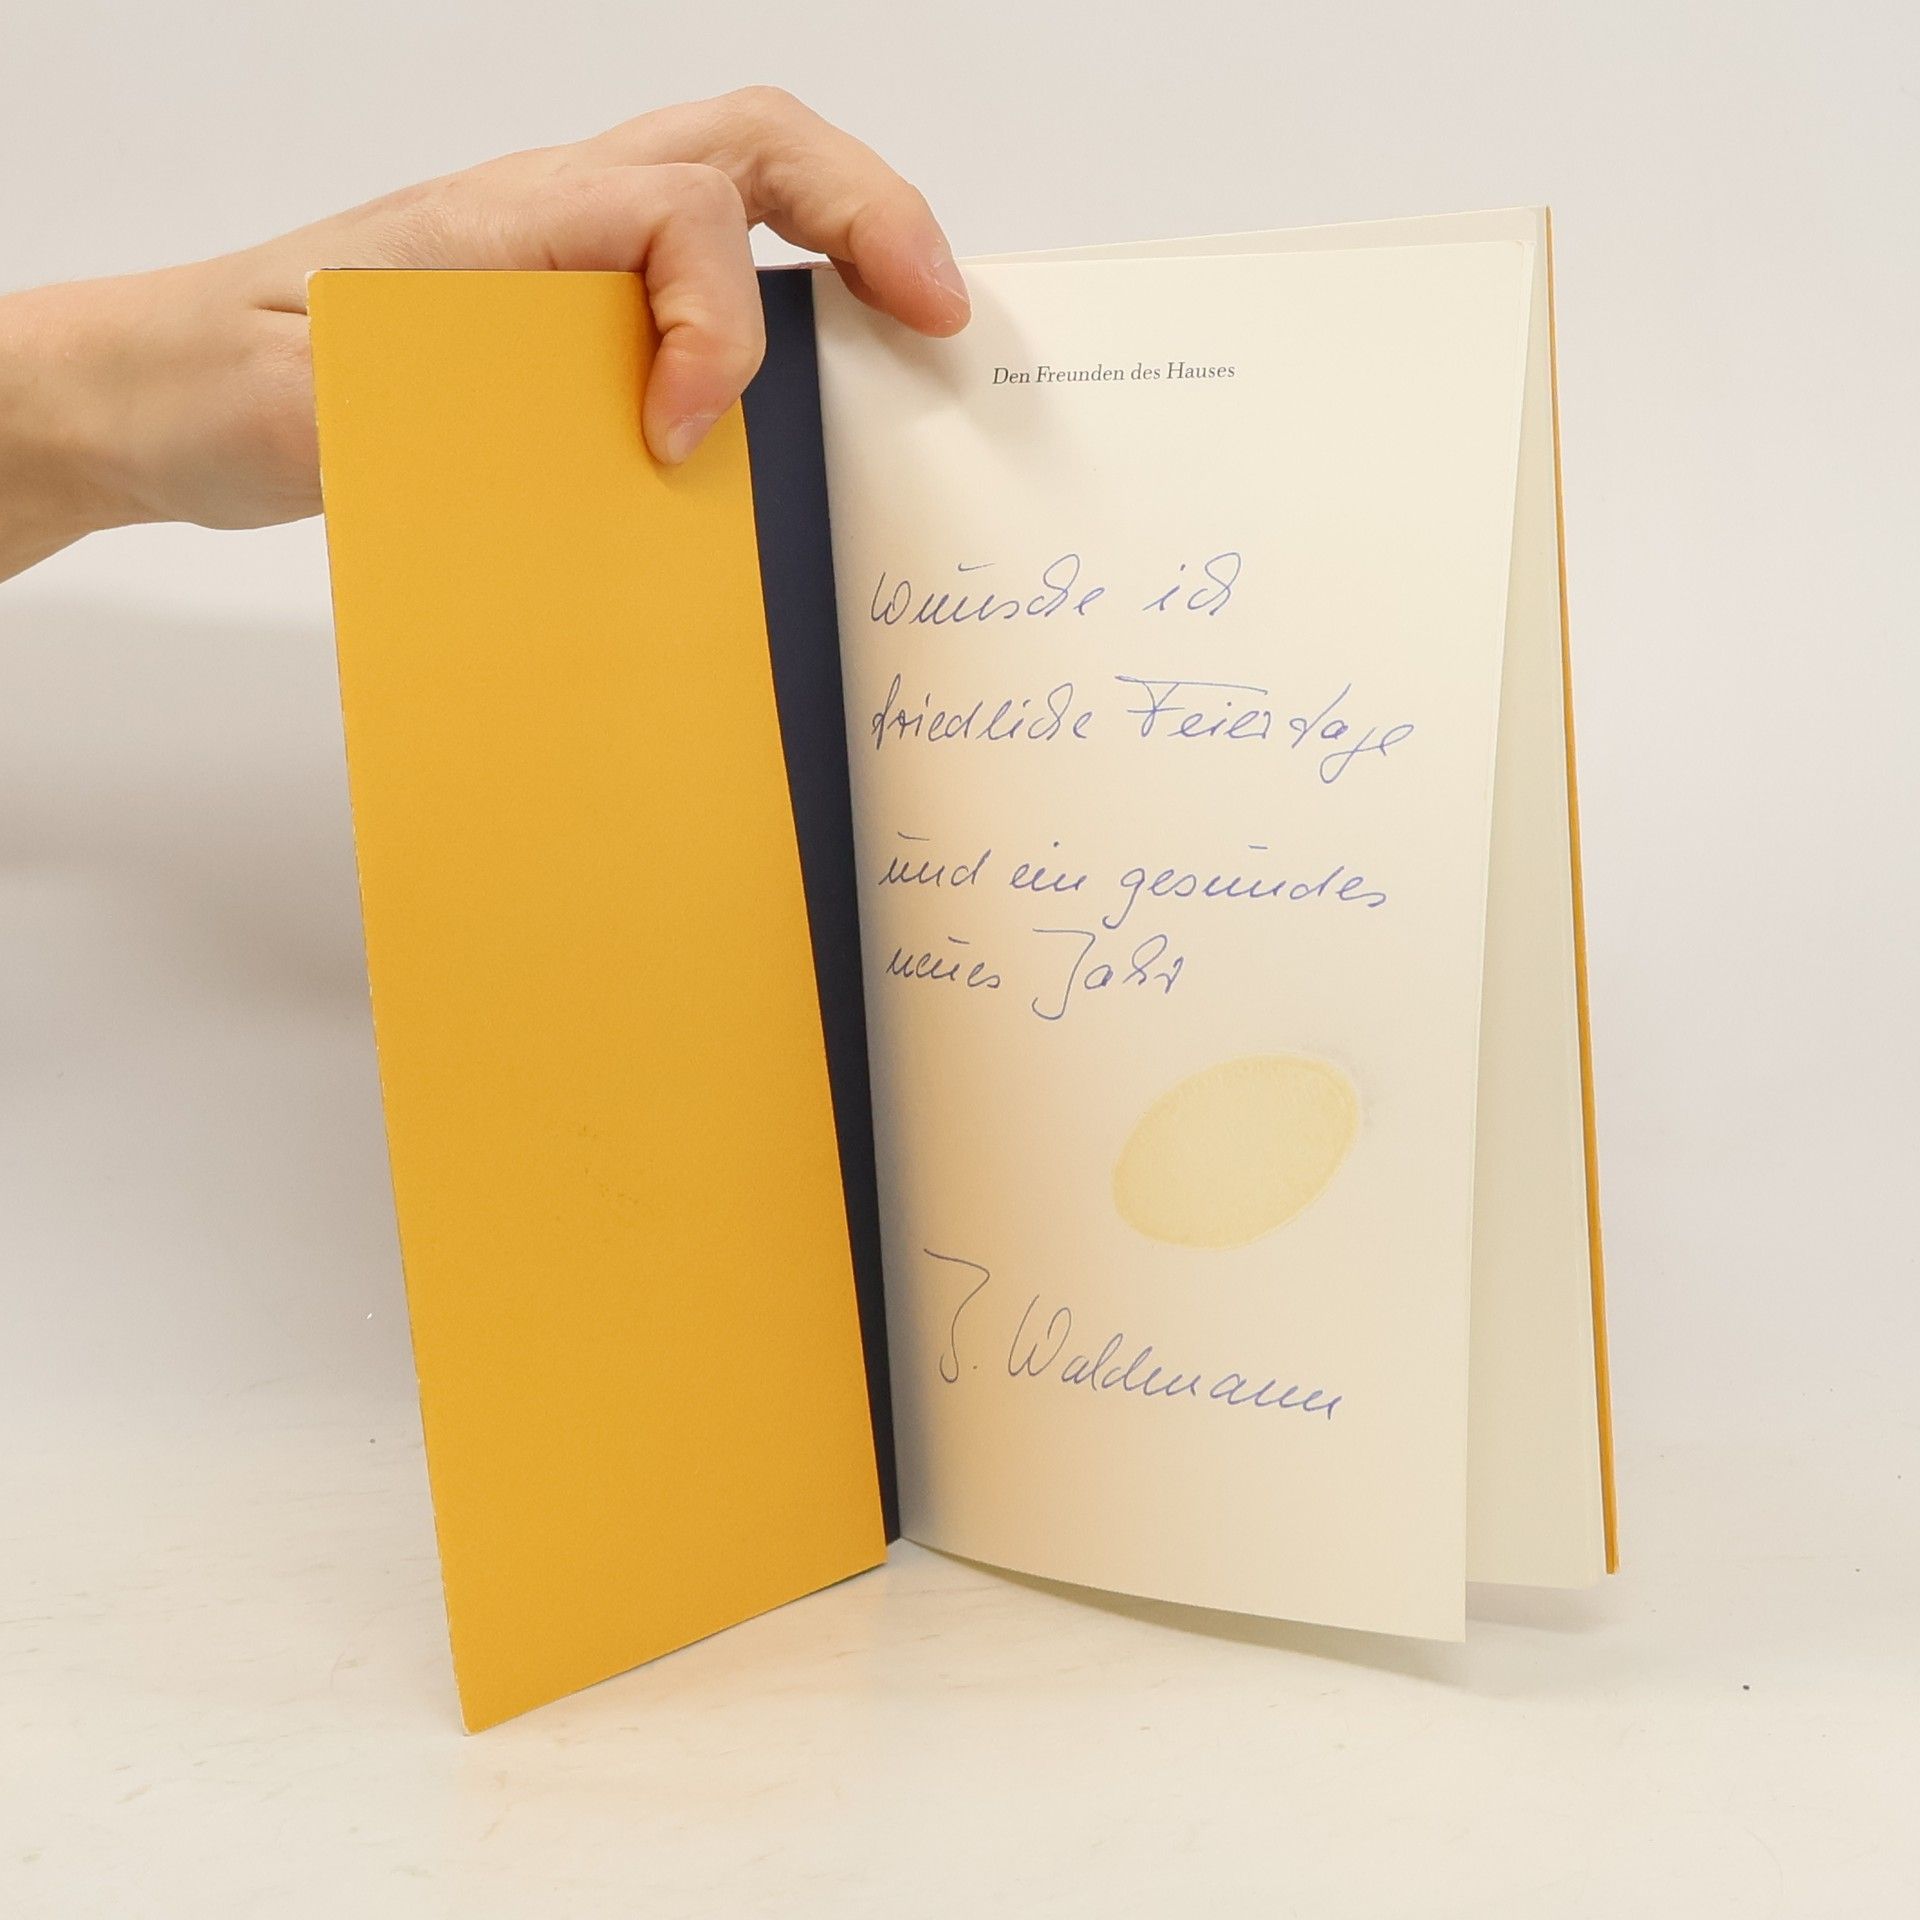 Den Freunden des Hauses
wünsche ich
friedliche Feiertage
und ein gesundes
neues Jahr
J. Waldmann